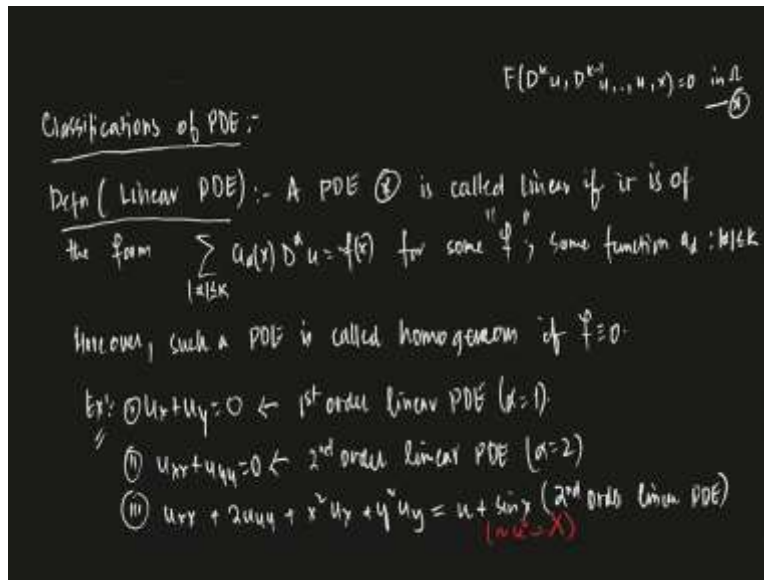 F(Dᵏu, Dᵏ⁻¹u,..,u,x)=0 in Ω
—⊛
Classifications of PDE:-
Defn (Linear PDE):- A PDE ⊛ is called linear if it is of
the form ∑ aα(x) Dᵅu = f(x) for some "f", some function aα : |α|≤k
|α|≤k
Moreover, such a PDE is called homogeneous if f≡0.
Ex: ① ux+uy=0 ← 1st order linear PDE (α=1).
② uxx+uyy=0 ← 2nd order linear PDE (α=2)
③ uxx + 2uyy + x²ux + y²uy = u + sinx (2nd order linear PDE)